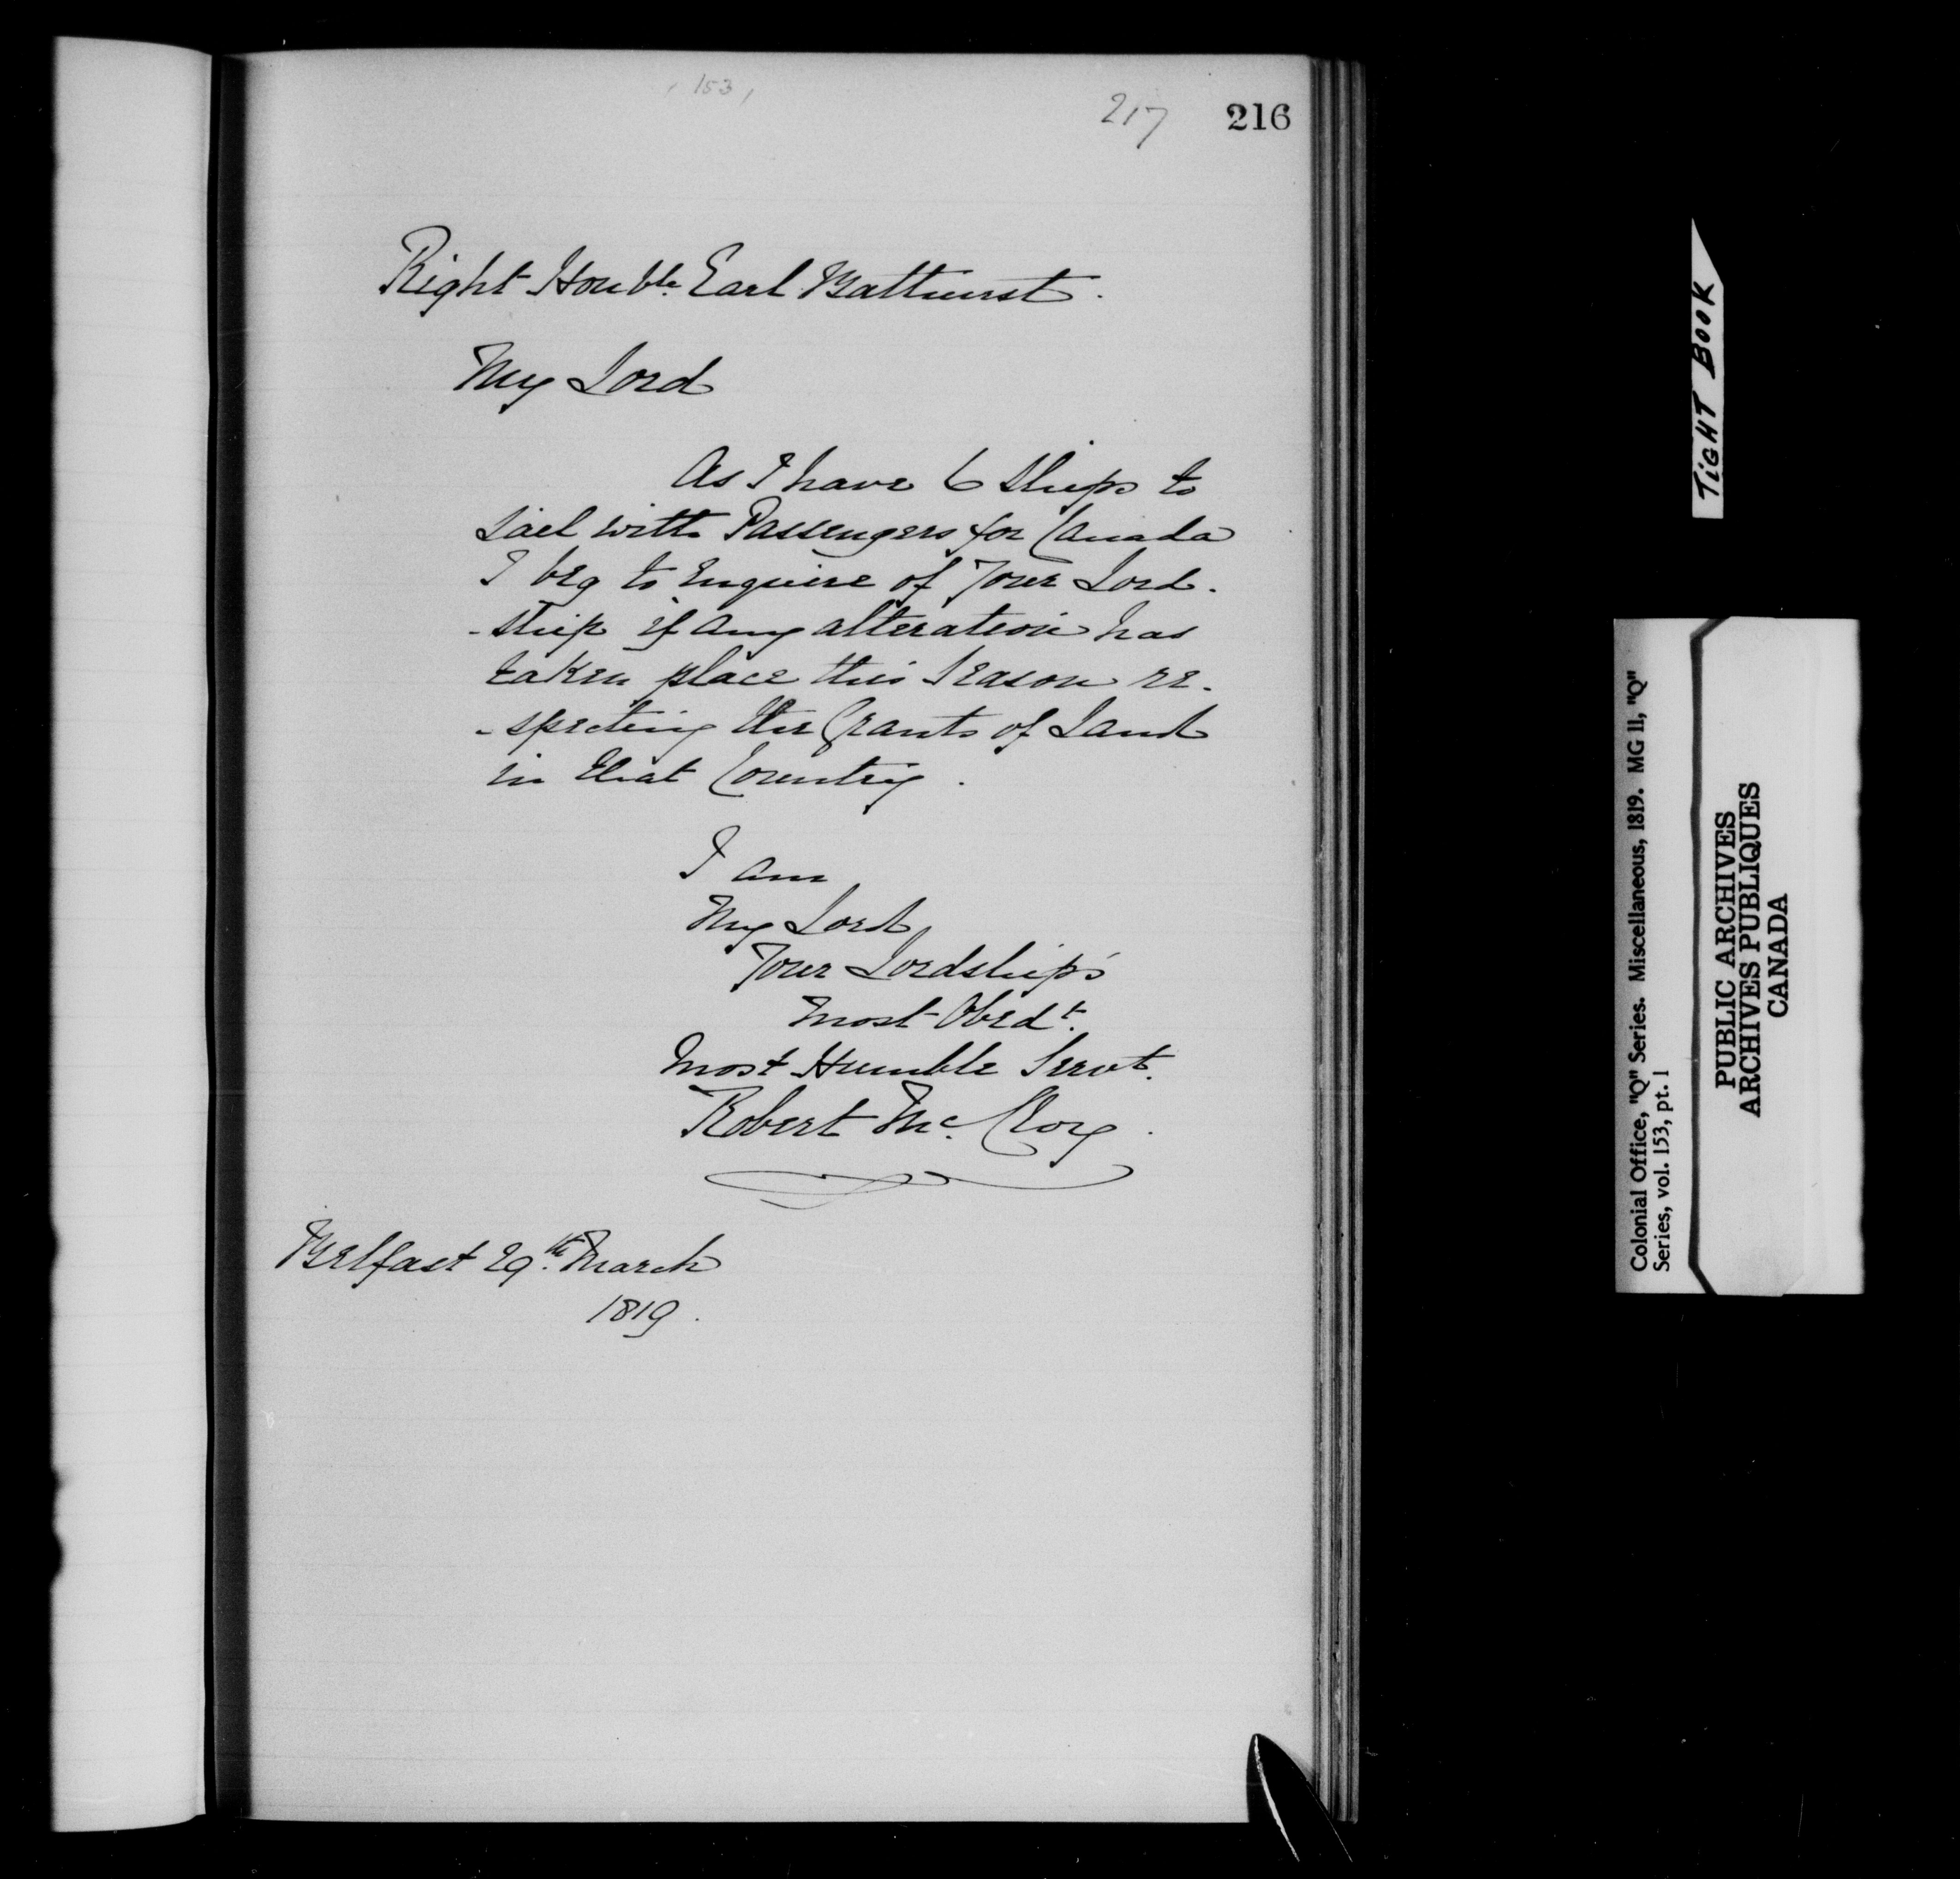 153
217 216
Right Honble. Earl Bathurst.
My Lord
As I have 6 Ships to
Sail with Passengers for Canada
I beg to Enquire of Your Lord-
-ship if any alteration has
taken place this Season re-
-specting the Grants of Land
in that Country.
I am
My Lord
Your Lordship's
Most Obedt.
Most Humble Servt.
Robert Mc. Cloy.
Belfast 29th. March
1819.
TIGHT BOOK
Colonial Office, "Q" Series. Miscellaneous, 1819. MG 11, "Q"
Series, vol. 153, pt. 1
PUBLIC ARCHIVES
ARCHIVES PUBLIQUES
CANADA